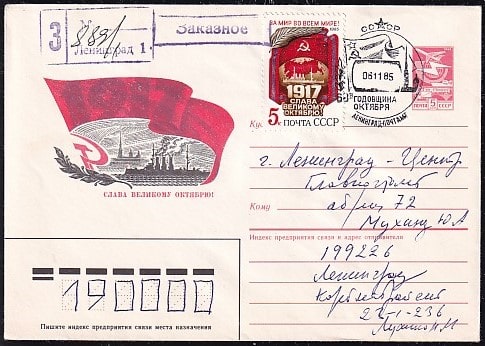 З 889
Ленинград 1
Заказное
ЗА МИР ВО ВСЕМ МИРЕ!
1985
1917
СЛАВА
ВЕЛИКОМУ
ОКТЯБРЮ!
5К ПОЧТА СССР
СССР
06 11 85
ГОДОВЩИНА
ОКТЯБРЯ
ЛЕНИНГРАД-ПОЧТАМТ
ПОЧТА 5 СССР
1917
СЛАВА ВЕЛИКОМУ ОКТЯБРЮ!
Куда
г. Ленинград - Центр
Главпочтамт
Кому
аб. ящ 72
Мухину Ю.А
Индекс предприятия связи и адрес отправителя
199226
Ленинград
Кораблестроителей
22-1-236
190000
Пишите индекс предприятия связи места назначения